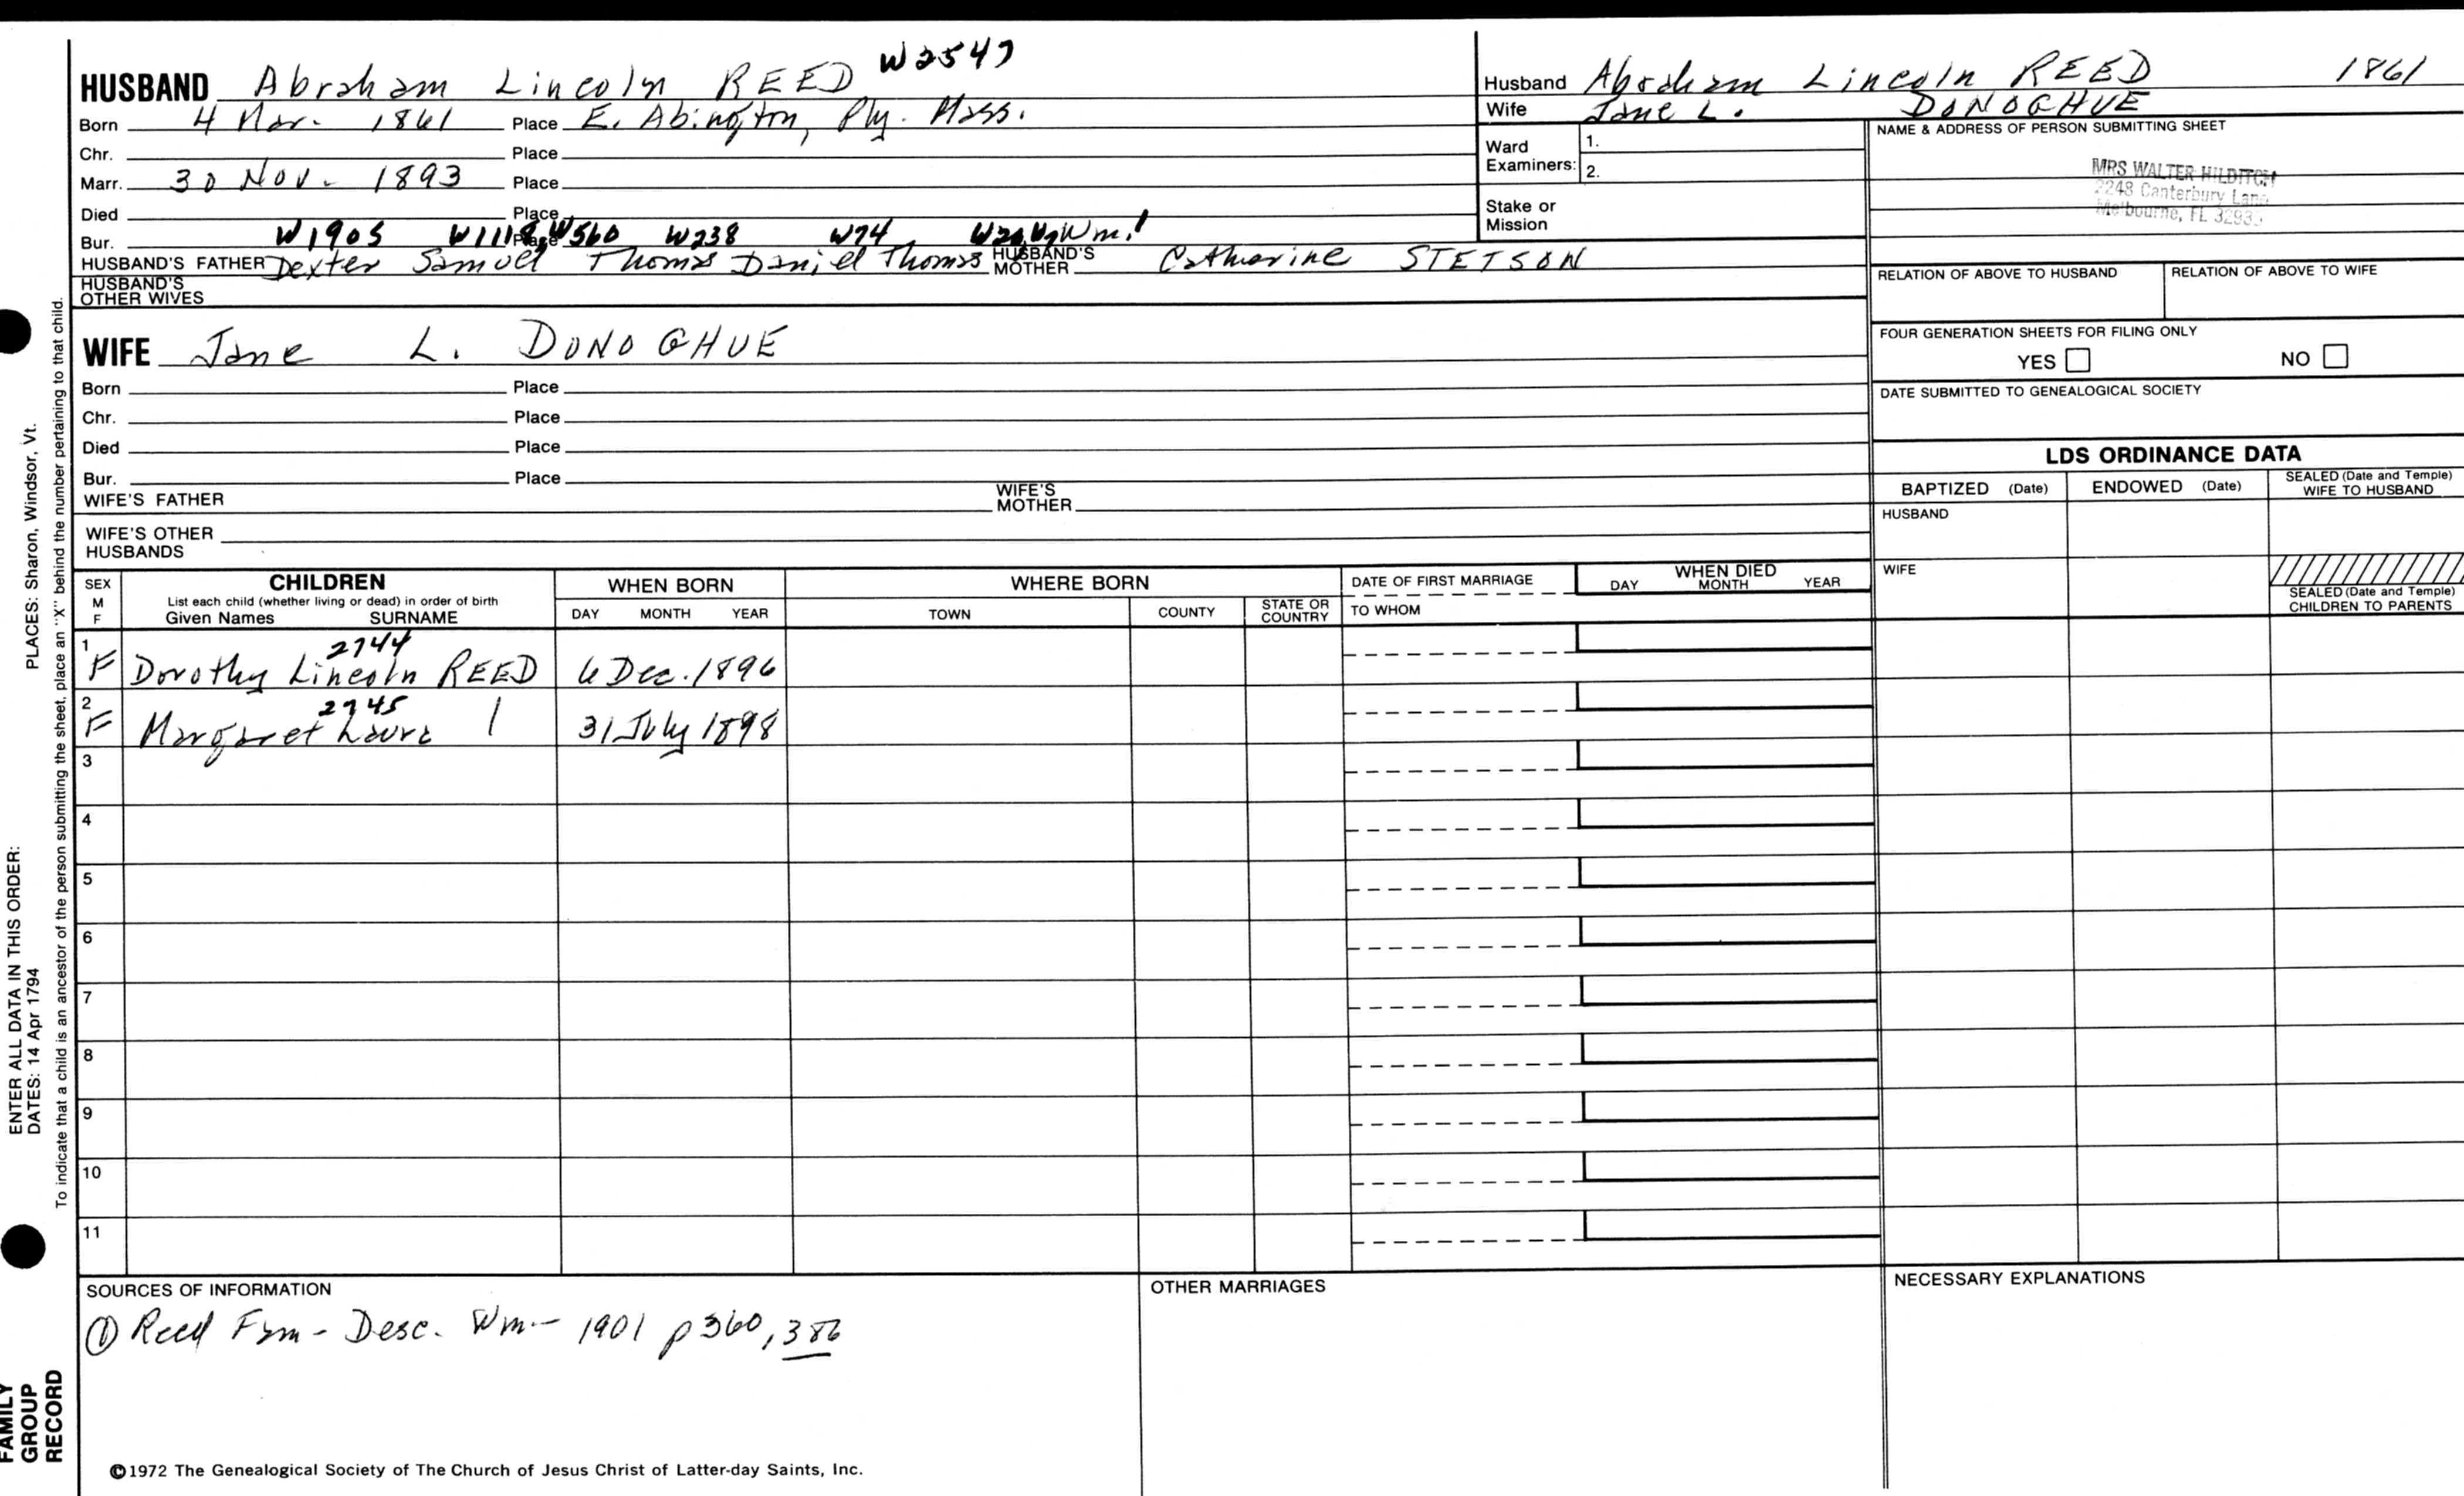 HUSBAND Abraham Lincoln REED W2547
Born 4 Mar. 1861 Place E. Abington, Ply. Mass.
Chr. Place
Marr. 30 Nov. 1893 Place
Died Place
Bur. Place W1905 W1118 W560 W238 W74 Wm.1
HUSBAND'S FATHER Dexter Samuel Thomas Daniel Thomas HUSBAND'S MOTHER Catharine STETSON
HUSBAND'S OTHER WIVES
Husband Abraham Lincoln REED 1861
Wife Jane L. DONOGHUE
Ward Examiners: 1.
2.
Stake or Mission
NAME & ADDRESS OF PERSON SUBMITTING SHEET
MRS WALTER HILDITCH
2248 Canterbury Lane
Melbourne, FL
RELATION OF ABOVE TO HUSBAND RELATION OF ABOVE TO WIFE
FOUR GENERATION SHEETS FOR FILING ONLY
YES NO
DATE SUBMITTED TO GENEALOGICAL SOCIETY
WIFE Jane L. DONOGHUE
Born Place
Chr. Place
Died Place
Bur. Place
WIFE'S FATHER WIFE'S MOTHER
WIFE'S OTHER HUSBANDS
LDS ORDINANCE DATA
BAPTIZED (Date) ENDOWED (Date) SEALED (Date and Temple) WIFE TO HUSBAND
HUSBAND
WIFE
SEALED (Date and Temple) CHILDREN TO PARENTS
SEX M F
CHILDREN
List each child (whether living or dead) in order of birth
Given Names SURNAME
WHEN BORN
DAY MONTH YEAR
WHERE BORN
TOWN COUNTY STATE OR COUNTRY
DATE OF FIRST MARRIAGE
TO WHOM
WHEN DIED
DAY MONTH YEAR
2744
1 F Dorothy Lincoln REED 6 Dec. 1896
2745
2 F Margaret Laura | 31 July 1898
3
4
5
6
7
8
9
10
11
SOURCES OF INFORMATION
① Reed Fam - Desc. Wm. - 1901 p360, 386
OTHER MARRIAGES
NECESSARY EXPLANATIONS
©1972 The Genealogical Society of The Church of Jesus Christ of Latter-day Saints, Inc.
FAMILY GROUP RECORD
ENTER ALL DATA IN THIS ORDER:
DATES: 14 Apr 1794
PLACES: Sharon, Windsor, Vt.
To indicate that a child is an ancestor of the person submitting the sheet, place an "X" behind the number pertaining to that child.